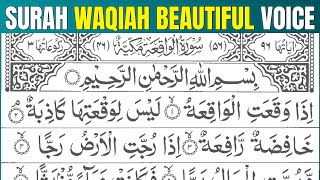 SURAH WAQIAH BEAUTIFUL VOICE
اٰيَاتُهَا ٩٦ (٥٦) سُوْرَةُ الْوَاقِعَةِ مَكِّيَّةٌ (٤٦) رُكُوْعَاتُهَا ٣
بِسْمِ اللّٰهِ الرَّحْمٰنِ الرَّحِيْمِ
اِذَا وَقَعَتِ الْوَاقِعَةُ ۙ﴿۱﴾ لَيْسَ لِوَقْعَتِهَا كَاذِبَةٌ ۘ﴿۲﴾
خَافِضَةٌ رَّافِعَةٌ ۙ﴿۳﴾ اِذَا رُجَّتِ الْاَرْضُ رَجًّا ۙ﴿۴﴾